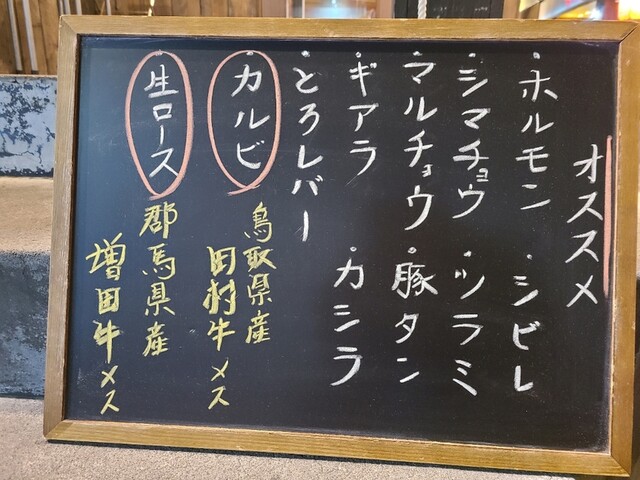 オススメ
・ホルモン ・シビレ
・シマチョウ ・ツラミ
・マルチョウ ・豚タン
・ギアラ ・カシラ
・とろレバー
・カルビ
鳥取県産
田村牛メス
・生ロース
郡馬県産
増田牛メス